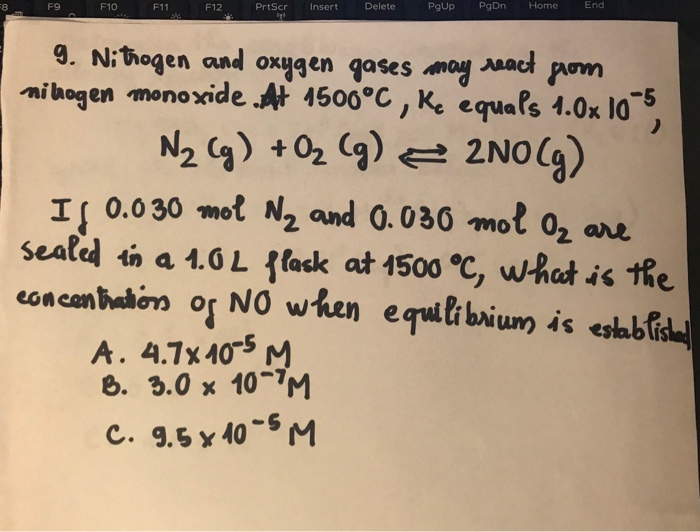 F8 F9 F10 F11 F12 PrtScr Insert Delete PgUp PgDn Home End
9. Nitrogen and oxygen gases may react from
nitrogen monoxide. At 1500°C, Kc equals 1.0x10⁻⁵,
N₂(g) + O₂(g) ⇌ 2NO(g)
If 0.030 mol N₂ and 0.030 mol O₂ are
sealed in a 1.0L flask at 1500 °C, what is the
concentration of NO when equilibrium is established
A. 4.7x10⁻⁵ M
B. 3.0 x 10⁻⁷M
C. 9.5 x 10⁻⁵ M